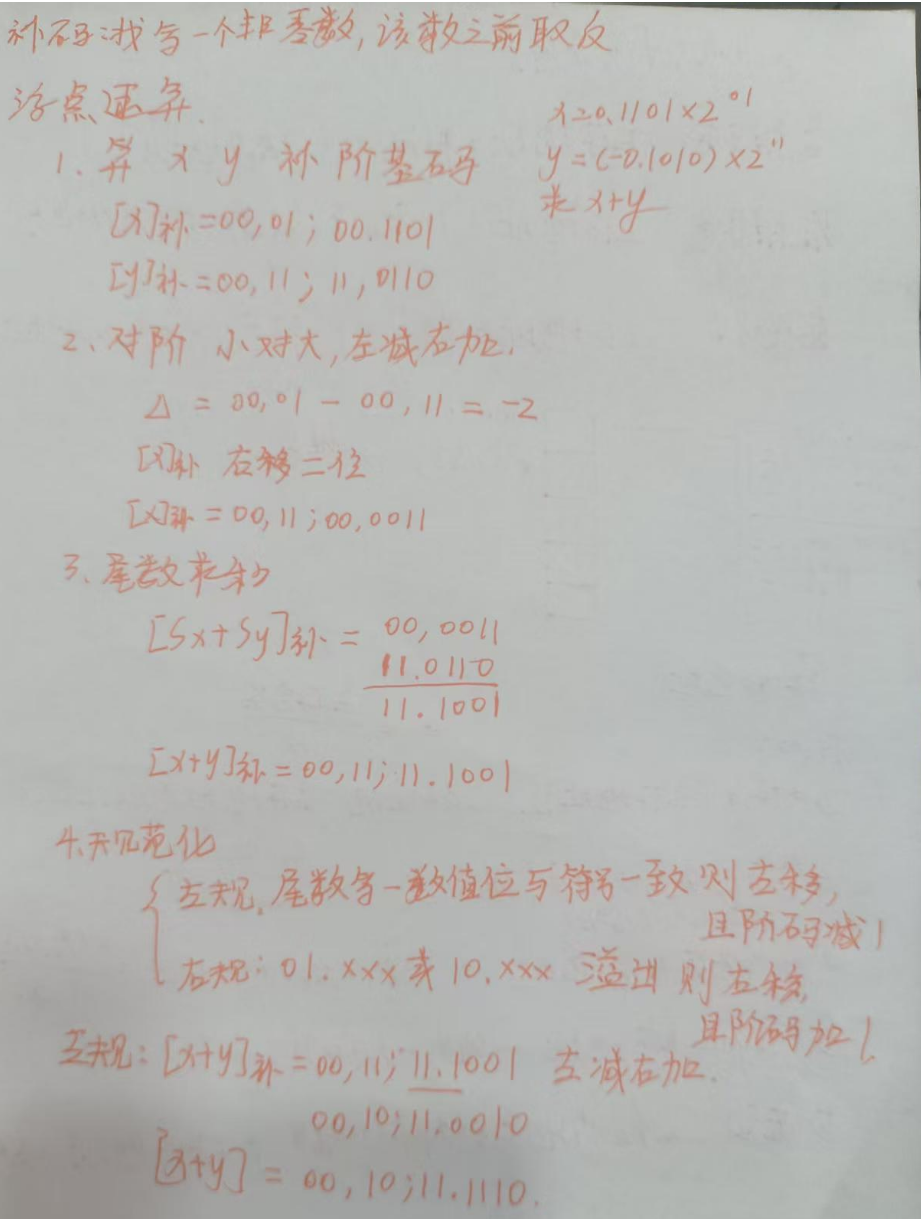 补码:找与一个非零数,该数之前取反
浮点运算.
x=0.1101×2^01
1. 算 x y 补 阶基码
y=(-0.1010)×2^11
求 x+y
[x]补=00,01; 00.1101
[y]补=00,11; 11,0110
2、对阶 小对大,左减右加.
Δ = 00,01 - 00,11 = -2
[x]补 右移二位
[x]补=00,11;00,0011
3、尾数求和
[Sx+Sy]补 = 00,0011
11.0110
11.1001
[x+y]补=00,11;11.1001
4.规范化
左规,尾数与一数值位与符号一致则左移,
且阶码减1
右规:01.xxx或10.xxx 溢出 则右移,
且阶码加1.
左规:[x+y]补=00,11;11.1001 左减右加.
00,10;11,0010
[x+y] = 00,10;11.1110.